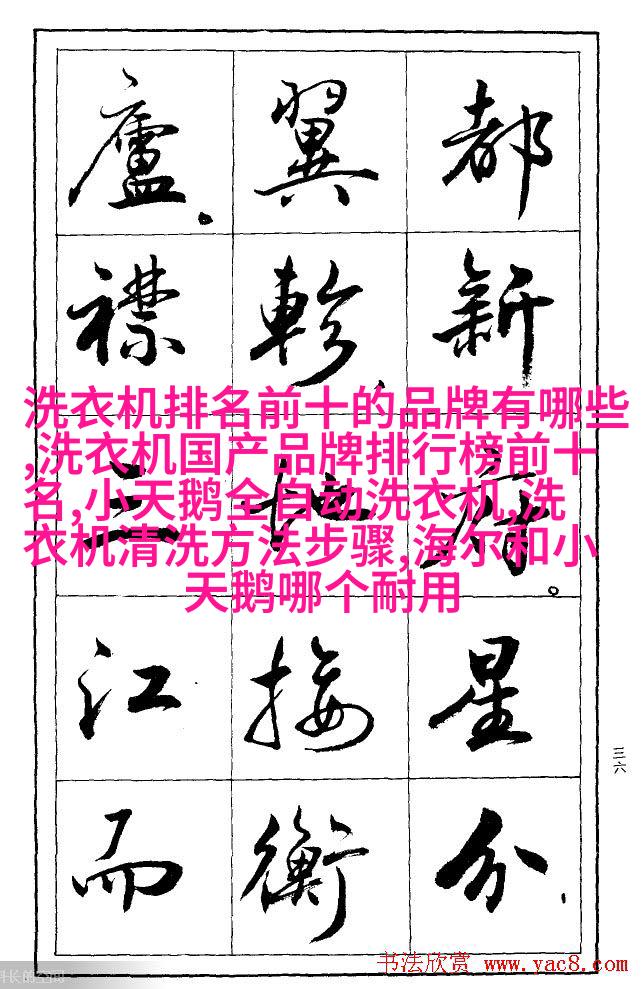 都新府。星分
翼軫、地接衡
廬。襟三江而
洗衣机排名前十的品牌有哪些
,洗衣机国产品牌排行榜前十
名,小天鹅全自动洗衣机,洗
衣机清洗方法步骤,海尔和小
天鹅哪个耐用
三六
书法欣赏 www.yac8.com
长的空间